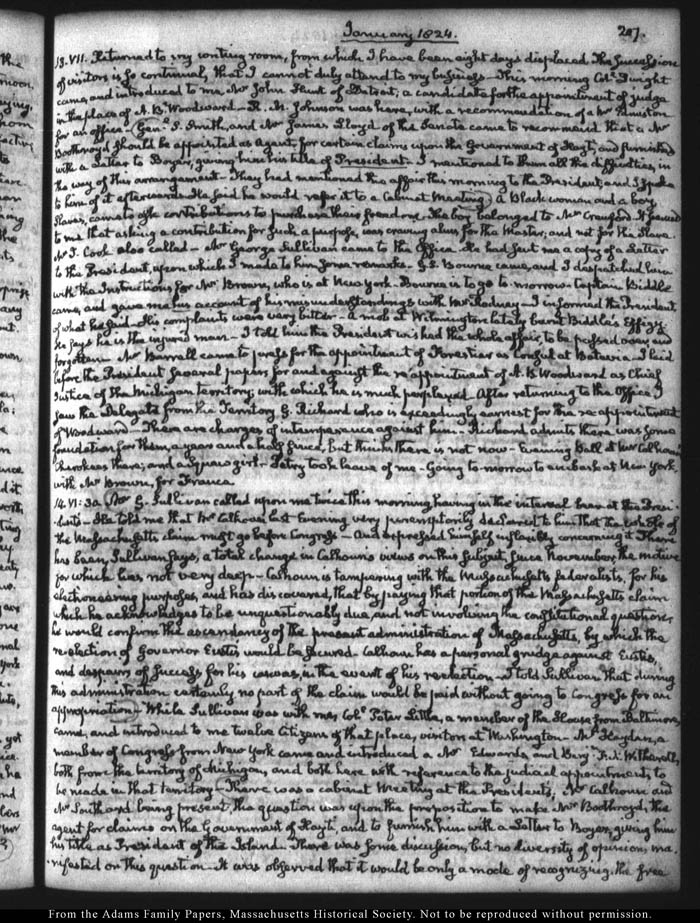 January 1824.
207.
13. VII. Returned to my writing room, from which I have been eight days displaced. The succession
of visitors is so continual, that I cannot duly attend to my business. This morning Col. Dwight
came, and introduced to me Mr John Hunt of Detroit, a candidate for the appointment of judge
in the place of A. B. Woodward. R. M. Johnson was here, with a recommendation of a Mr Edmiston
for an office. Gen. S. Smith, and Mr James Lloyd of the Senate came to recommend that a Mr
Boothroyd should be appointed as Agent, for certain claims upon the Government of Hayti, and furnished
with a Letter to Boyer, giving him his title of President. I mentioned to them all the difficulties, in
the way of this arrangement. They had mentioned the affair this morning to the President, and I spoke
to him of it afterwards. He said he would refer it to a Cabinet Meeting. A Black woman and a boy
Slaves, came to ask contributions to purchase their freedom. The boy belonged to Mr Crawford. It seemed
to me that asking a contribution for such a purpose, was craving alms for the Master, and not for the Slave.
Mr D. Cook also called. Mr George Sullivan came to the Office. He had sent me a copy of a Letter
to the President, upon which I made to him some remarks. S. E. Bourne came, and I despatched him
with the Instructions for Mr Brown, who is at New York. Bourne is to go to-morrow. Captain Biddle
came, and gave me his account of his misunderstandings with Mr Rodney. I informed the President
of what he said. His complaints were very bitter. A mob at Wilmington lately burnt Biddle's Effigy.
He says he is the injured man. I told him the President wished the whole affair, to be passed over, and
forgotten. Mr Barrell came to press for the appointment of Forestier as Consul at Batavia. I laid
before the President several papers for and against the re-appointment of A. B. Woodward as Chief
Justice of the Michigan territory; with which he is much perplexed. After returning to the Office, I
saw the Delegate from the Territory G. Richard who is exceedingly earnest for the re-appointment
of Woodward. There are charges of intemperance against him. Richard admits there was some
foundation for them, a year and a half since, but thinks there is not now. Evening Ball at Mr Calhoun's
Cherokees there; and a Squaw girl. Petry took leave of me. Going to-morrow to embark at New York,
with Mr Brown, for France.
14. VI:30. Mr G. Sullivan called upon me twice this morning, having in the interval been at the Presi-
dent's. He told me that Mr Calhoun last Evening very peremptorily declared to him that the whole of
the Massachusetts claim must go before Congress. And expressed himself inflexibly concerning it. There
has been, Sullivan says, a total change in Calhoun's views on this subject, since November, the motive
for which lies not very deep. Calhoun is tampering with the Massachusetts federalists, for his
electioneering purposes, and has discovered, that by paying that portion of the Massachusetts claim
which he acknowledges to be unquestionably due, and not involving the constitutional question,
he would confirm the ascendancy of the present administration of Massachusetts, by which the
re-election of Governor Eustis would be secured. Calhoun has a personal grudge against Eustis,
and despairs of success for his canvas, in the event of his re-election. I told Sullivan that during
this administration certainly no part of the claim would be paid without going to Congress for an
appropriation. While Sullivan was with me, Col. Peter Little, a member of the House from Baltimore,
came, and introduced to me twelve Citizens of that place, visitors at Washington. Mr Hayden, a
member of Congress from New York came and introduced a Mr Edwards, and Benj. F. H. Witherell,
both from the territory of Michigan, and both here with reference to the judicial appointments to
be made in that territory. There was a cabinet Meeting at the President's, Mr Calhoun and
Mr Southard being present, the question was upon the proposition to make Mr Boothroyd, the
agent for claims on the Government of Hayti, and to furnish him with a Letter to Boyer, giving him
his title as President of the Island. There was some discussion, but no diversity of opinion, ma-
nifested on this question. It was observed that it would be only a mode of recognizing the free
From the Adams Family Papers, Massachusetts Historical Society. Not to be reproduced without permission.